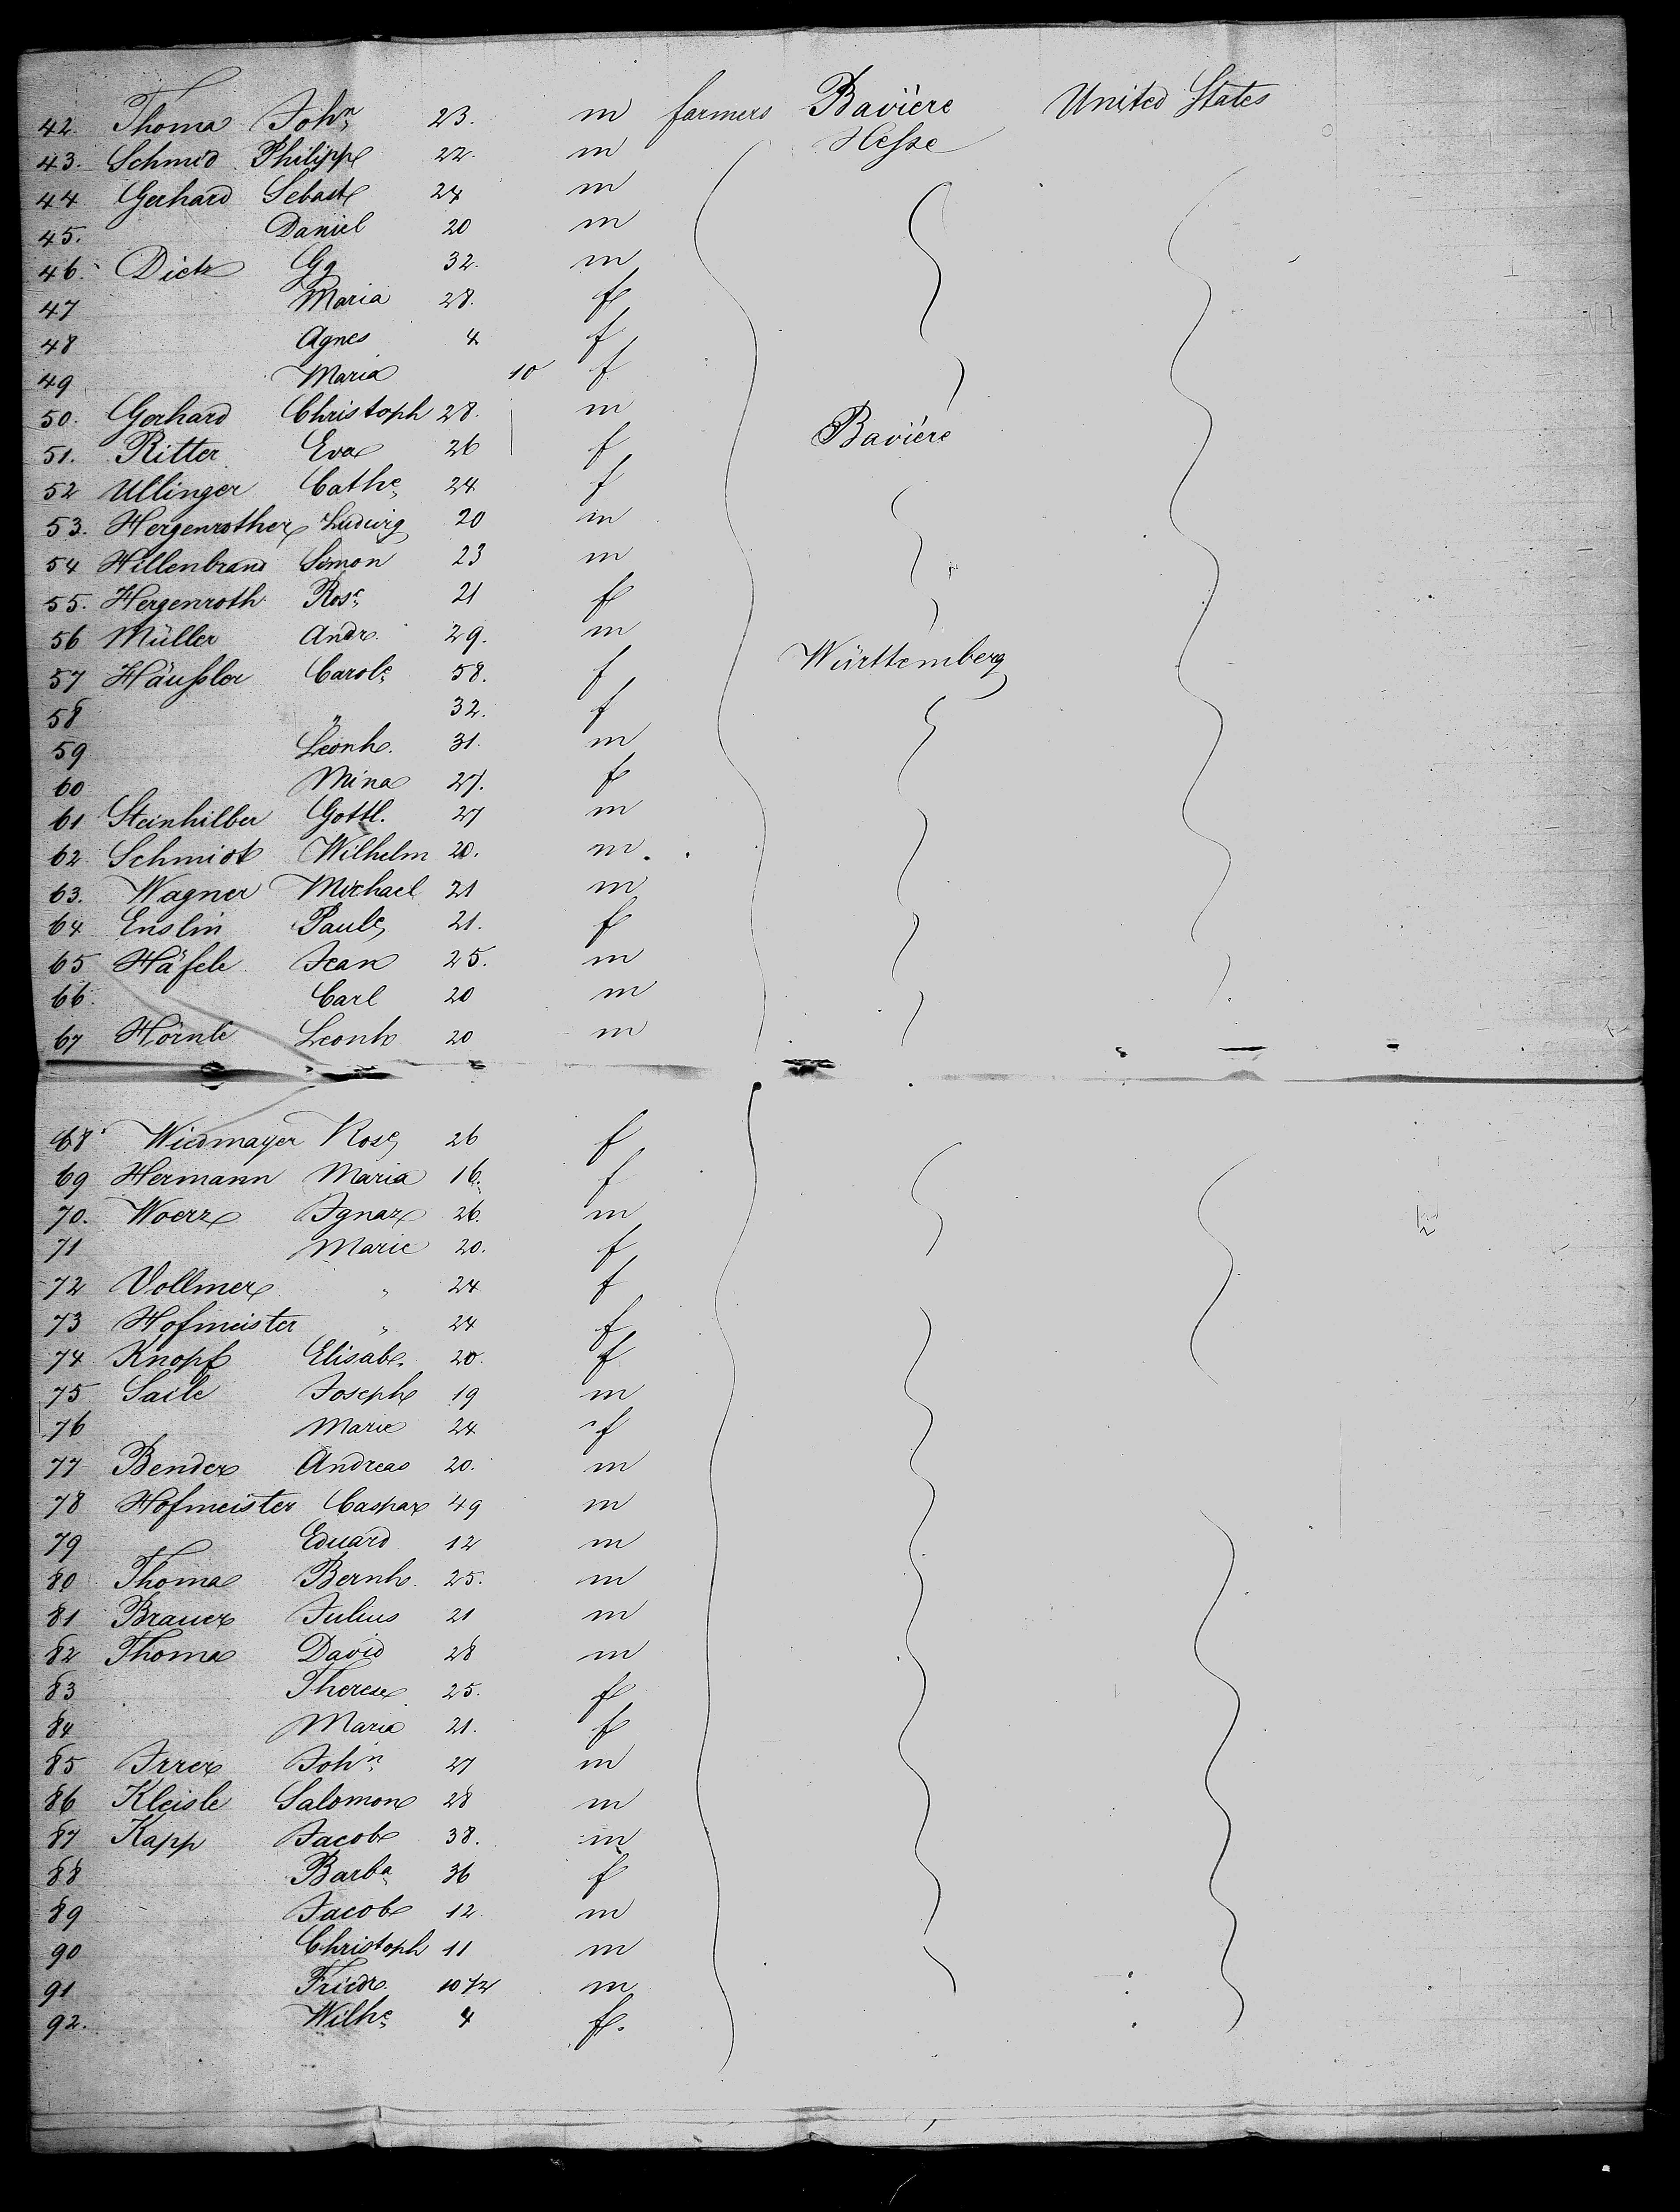 42. Thoma Joh.n 23. m farmers Bavière United States
43. Schmid Philipp 22. m Hesse
44 Gerhard Sebast 24 m
45. Daniel 20 m
46. Dietz Gg 32. m
47 Maria 28. f
48 Agnes 4 f
49 Maria 10 f
50. Gerhard Christoph 28. m
51. Ritter Eva 26 f Bavière
52 Ullinger Cath.e 24 f
53. Hergenrother Ludwig 20 m
54 Hillenbrand Simon 23 m
55. Hergenroth Ros.e 21 f
56 Müller Andr. 29. m
57 Häußler Carol.e 58. f Württemberg
58 " 32. f
59 Leonh. 31. m
60 Mina 27. f
61 Steinhilber Gottl. 27 m
62. Schmidt Wilhelm 20. m.
63. Wagner Michael 21 m
64 Enslin Paule 21. f
65 Häfele Jean 25. m
66. Carl 20 m
67 Hörnle Leonh 20 m
68 Wiedmayer Rose 26 f
69 Hermann Maria 16. f
70. Woerz Ignaz 26. m
71 Marie 20. f
72 Vollmer " 24 f
73 Hofmeister " 24 f
74 Knopf Elisab. 20. f
75 Saile Joseph 19 m
76 Marie 24 f
77 Bender Andreas 20. m
78 Hofmeister Caspar 49 m
79 Eduard 12 m
80 Thoma Bernh. 25. m
81 Brauer Julius 21 m
82 Thoma David 28 m
83 Therese 25. f
84 Maria 21. f
85 Irrer Joh.n 27 m
86 Kleisle Salomon 28 m
87 Kapp Jacob 38. m
88 Barb.a 36 f
89 Jacob 12. m
90 Christoph 11 m
91 Friedr. 10 1/2 m
92. Wilh.e 4 f.